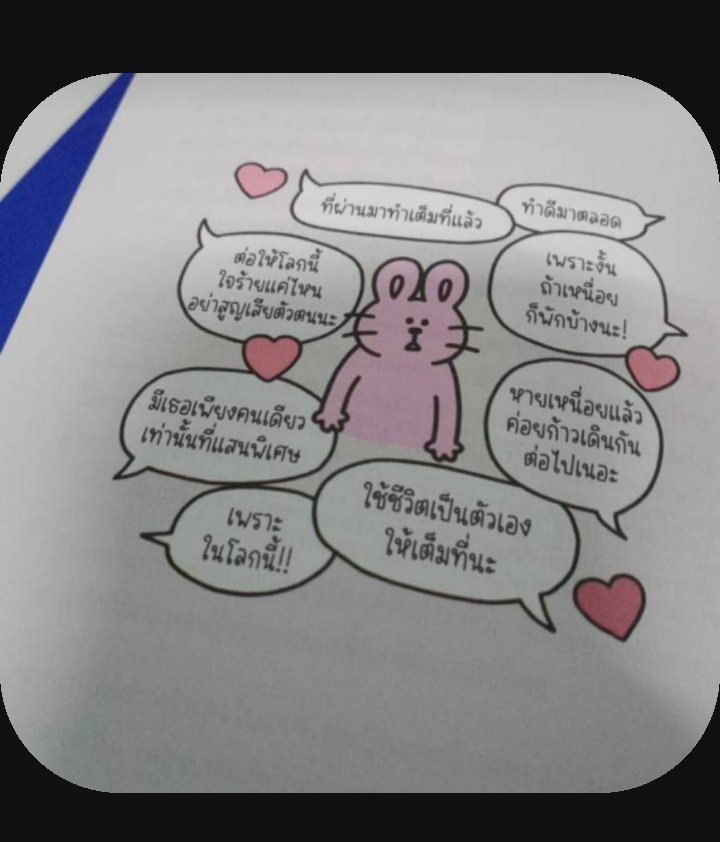 ที่ผ่านมาทำเต็มที่แล้ว
ทำดีมาตลอด
เพราะงั้น
ถ้าเหนื่อย
ก็พักบ้างนะ!
ต่อให้โลกนี้
ใจร้ายแค่ไหน
อย่าสูญเสียตัวตนนะ
หายเหนื่อยแล้ว
ค่อยก้าวเดินกัน
ต่อไปเนอะ
มีเธอเพียงคนเดียว
เท่านั้นที่แสนพิเศษ
ใช้ชีวิตเป็นตัวเอง
ให้เต็มที่นะ
เพราะ
ในโลกนี้!!